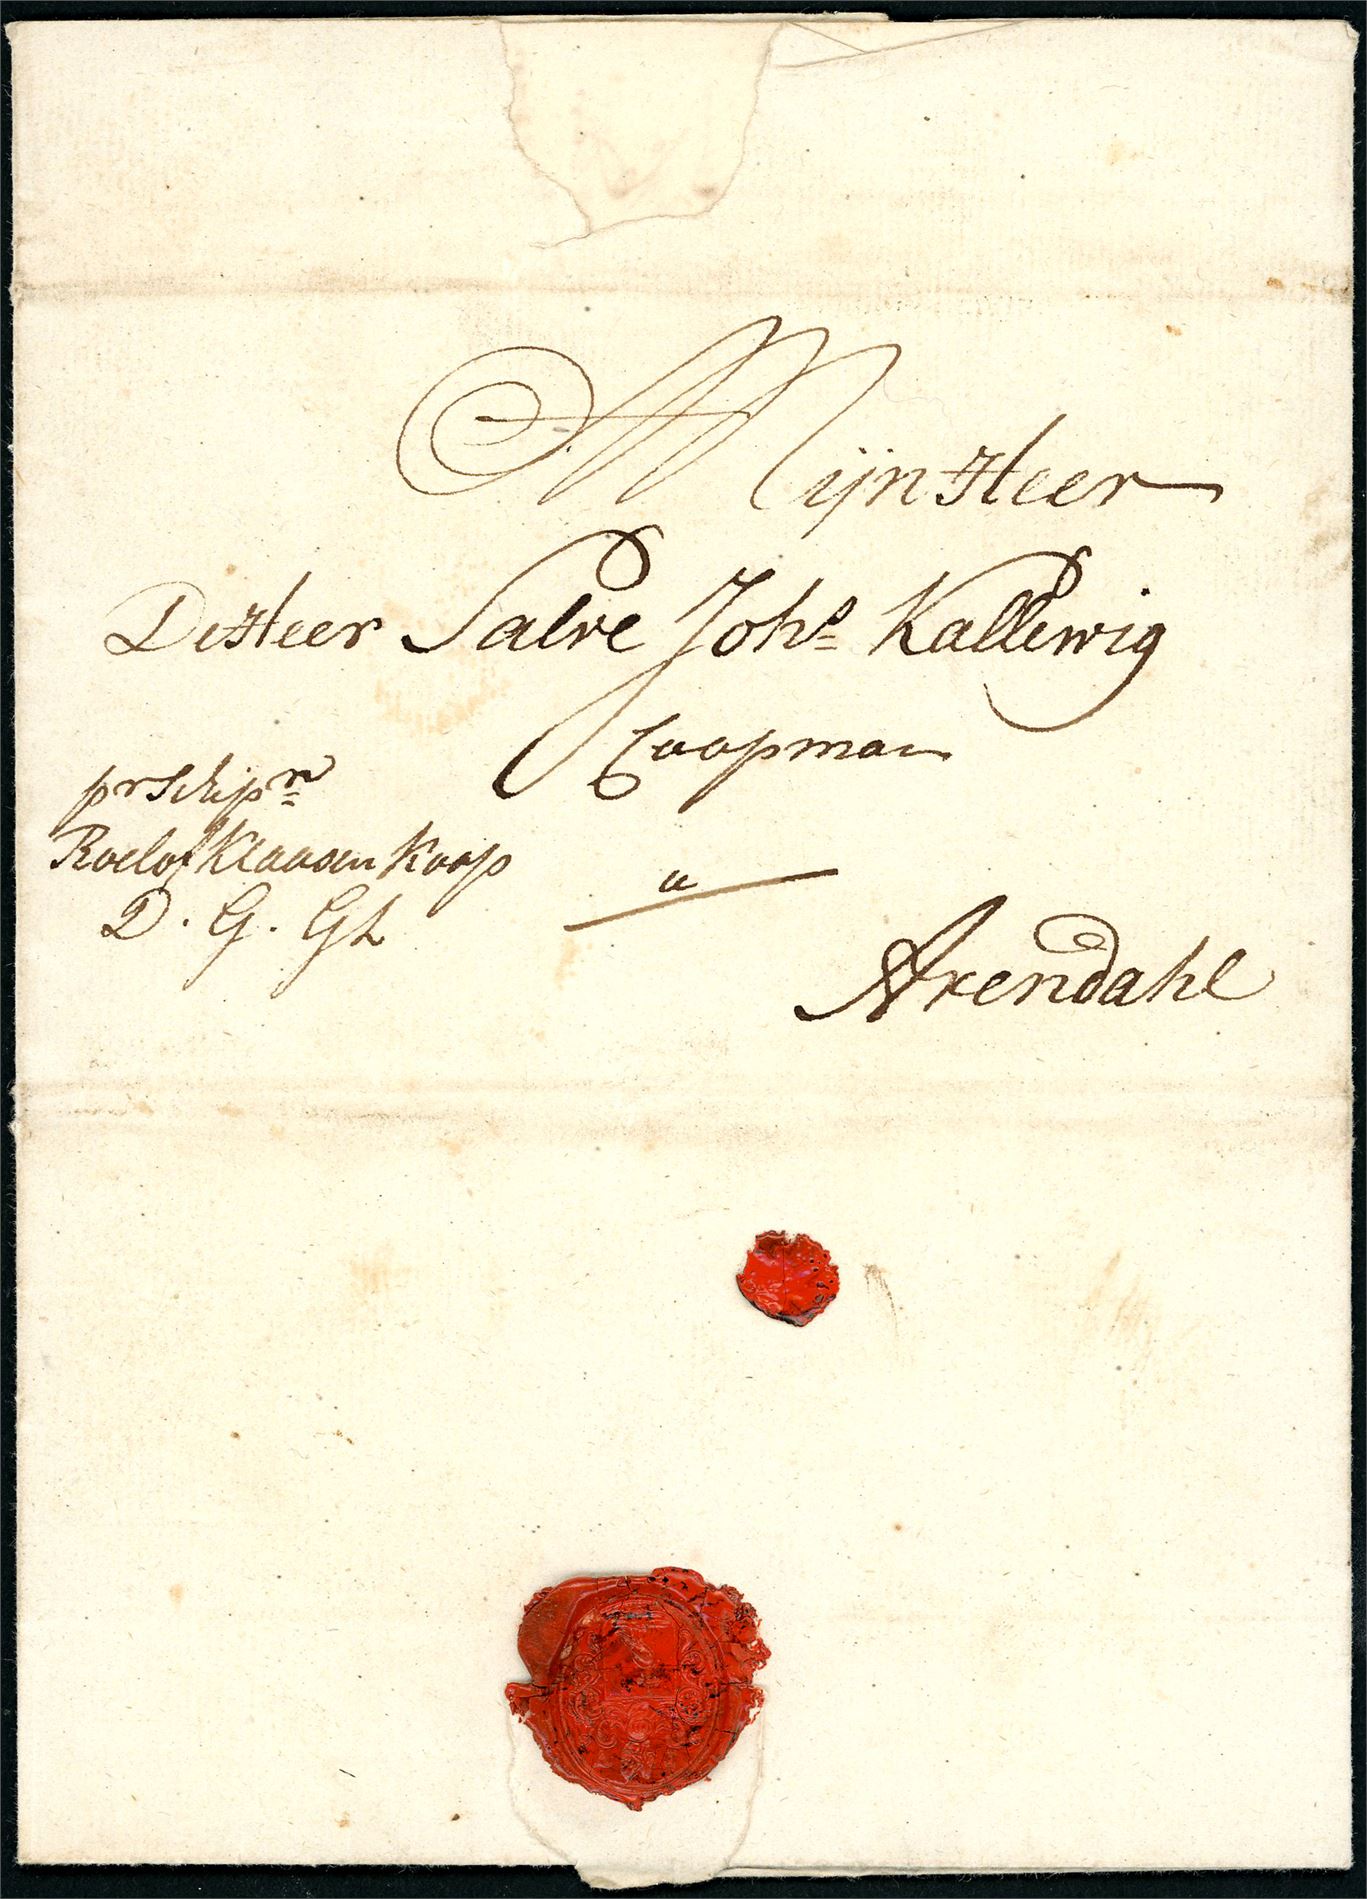 Mijn Heer
De Heer Salve Johs Kallewig
Coopman
pr Schiprn
Roelof Klaasen Koop
D. G. Gl
a
Arendahl